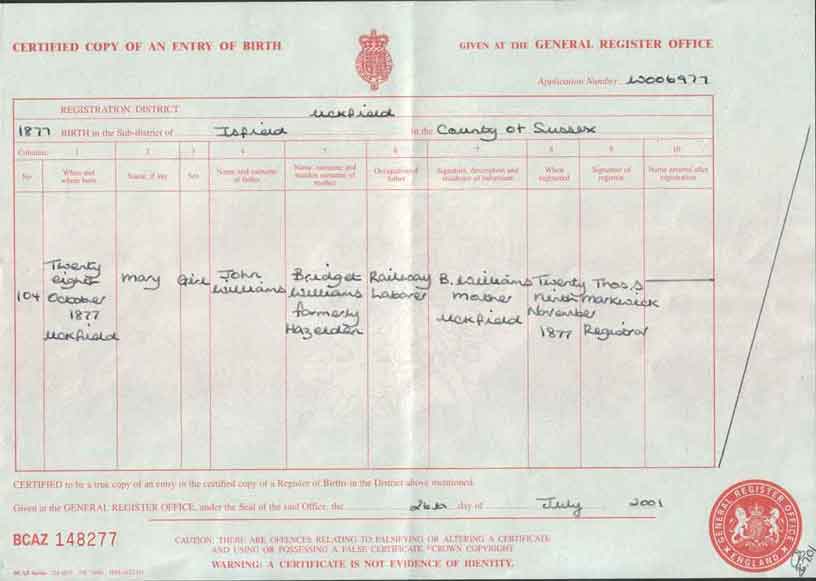 CERTIFIED COPY OF AN ENTRY OF BIRTH
GIVEN AT THE GENERAL REGISTER OFFICE
Application Number W006977
REGISTRATION DISTRICT Uckfield
1877 BIRTH in the Sub-district of Isfield in the County of Sussex
Columns:- 1 2 3 4 5 6 7 8 9 10
No When and where born
Name, if any
Sex
Name and surname of father
Name, surname and maiden surname of mother
Occupation of father
Signature, description and residence of informant
When registered
Signature of registrar
Name entered after registration
104
Twenty
eighth
October
1877
Uckfield
Mary
Girl
John
Williams
Bridget
Williams
formerly
Hazelden
Railway
Laborer
B. Williams
Mother
Uckfield
Twenty
ninth
November
1877
Thos. S
Markwick
Registrar
CERTIFIED to be a true copy of an entry in the certified copy of a Register of Births in the District above mentioned.
Given at the GENERAL REGISTER OFFICE, under the Seal of the said Office, the 26th day of July 2001
BCAZ 148277
CAUTION: THERE ARE OFFENCES RELATING TO FALSIFYING OR ALTERING A CERTIFICATE
AND USING OR POSSESSING A FALSE CERTIFICATE ©CROWN COPYRIGHT
WARNING: A CERTIFICATE IS NOT EVIDENCE OF IDENTITY.
GENERAL REGISTER OFFICE
ENGLAND